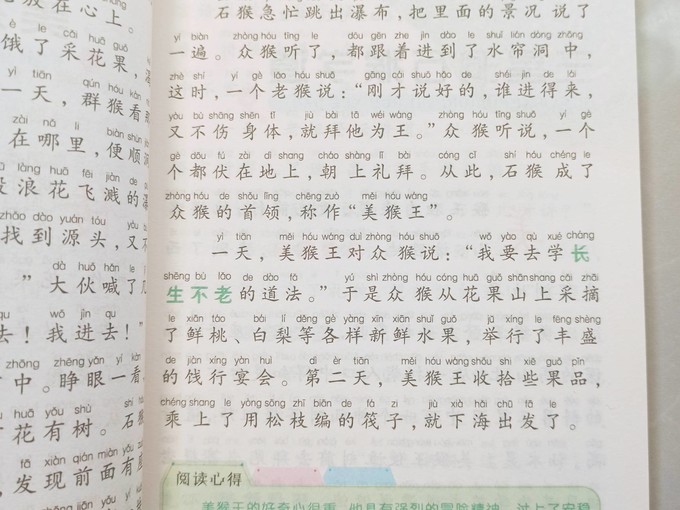 在心上。
饿了采花果,
一天,群猴看
在哪里,便顺
浪花飞溅的
找到源头,又
”大伙喊了
去!我进去!”
中。睁眼一看
花有树。石
发现前面有
石猴急忙跳出瀑布,把里面的景况说了
yí biàn zhòng hóu tīng le dōu gēn zhe jìn dào le shuǐ lián dòng zhōng
一遍。众猴听了,都跟着进到了水帘洞中,
zhè shí yí gè lǎo hóu shuō gāng cái shuō hǎo de shéi jìn de lái
这时,一个老猴说:“刚才说好的,谁进得来,
yòu bù shāng shēn tǐ jiù bài tā wéi wáng zhòng hóu tīng shuō yí
又不伤身体,就拜他为王。”众猴听说,一个
gè dōu fú zài dì shang cháo shàng lǐ bài cóng cǐ shí hóu chéng le
个都伏在地上,朝上礼拜。从此,石猴成了
zhòng hóu de shǒu lǐng chēng zuò měi hóu wáng
众猴的首领,称作“美猴王”。
yì tiān měi hóu wáng duì zhòng hóu shuō wǒ yào qù xué cháng
一天,美猴王对众猴说:“我要去学长
shēng bù lǎo de dào fǎ yú shì zhòng hóu cóng huā guǒ shān shang cǎi zhāi
生不老的道法。”于是众猴从花果山上采摘
le xiān táo bái lí děng gè yàng xīn xiān shuǐ guǒ jǔ xíng le fēng shèng
了鲜桃、白梨等各样新鲜水果,举行了丰盛
de jiàn xíng yàn huì dì èr tiān měi hóu wáng shōu shi xiē guǒ pǐn
的饯行宴会。第二天,美猴王收拾些果品,
chéng shang le yòng sōng zhī biān de fá zi jiù xià hǎi chū fā le
乘上了用松枝编的筏子,就下海出发了。
阅读心得
美猴王的好奇心很重,他具有强烈的冒险精神,过上了安稳